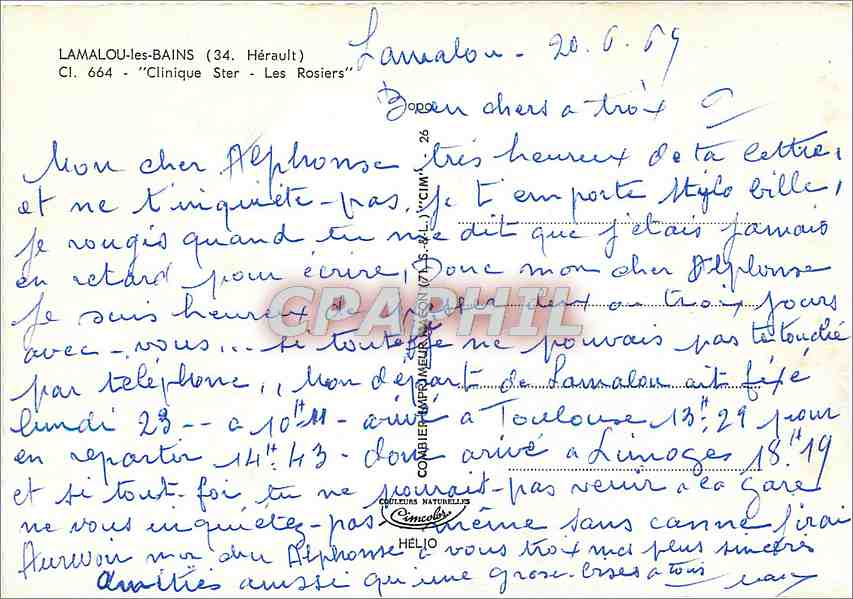 LAMALOU-les-BAINS (34. Hérault)
Cl. 664 - "Clinique Ster - Les Rosiers"
Lamalou - 20.6.69
Bien chers a troix
Mon cher Alphonse très heureux de ta lettre,
et ne t'inquiète-pas, je t'emporte stylo bille,
je rougis quand tu me dit que j'étais jamais
en retard pour écrire, Donc mon cher Alphonse
je suis heureux de passer deux ou trois jours
avec-vous... si toutefte ne pouvais pas te touché
par téléphone,, Mon départ de Lamalou ait fixé
lundi 23 -- a 10H11 - arivé a Toulouse 13H29 pour
en repartir 14H43 - donc arivé a Limoges 18H19
et si tout-foi tu ne pourrait-pas venir a la gare
ne vous inquiétez-pas même sans canne j'irai
Aurevoir mon cher Alphonse a vous trois mes plus sincères
amitiés aussi qu'une grosse bises a tous
COMBIER IMPRIMEUR MACON (71, S.-&-L.) "CIM"
26
COULEURS NATURELLES
Cimcolor
HELIO
CPARPHIL